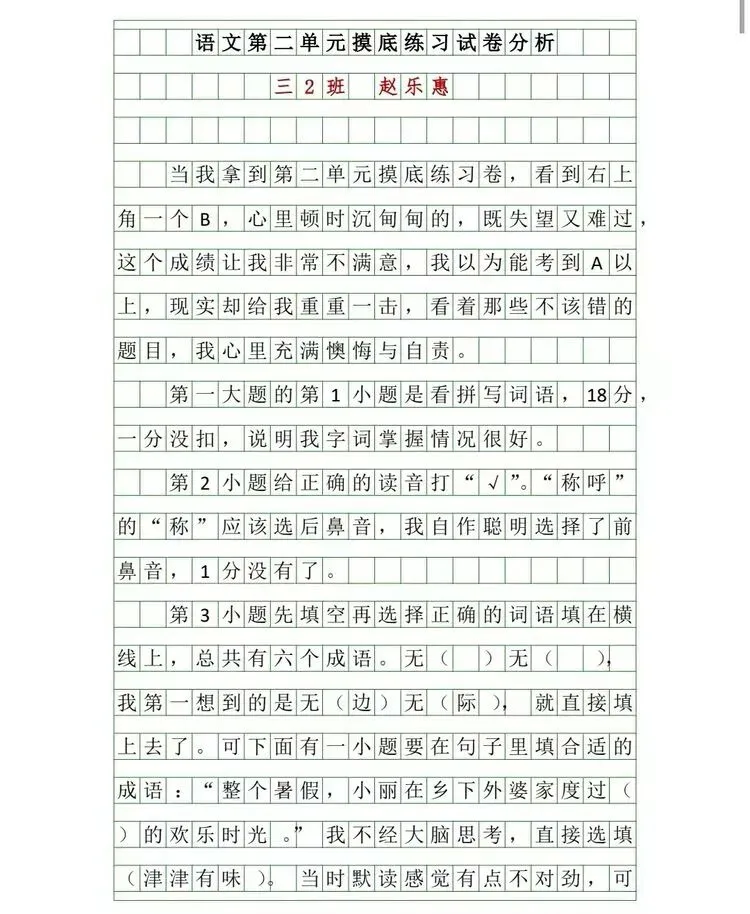 语文第二单元摸底练习试卷分析
三2班 赵乐惠
当我拿到第二单元摸底练习卷，看到右上
角一个B，心里顿时沉甸甸的，既失望又难过，
这个成绩让我非常不满意，我以为能考到A以
上，现实却给我重重一击，看着那些不该错的
题目，我心里充满懊悔与自责。
第一大题的第1小题是看拼写词语，18分，
一分没扣，说明我字词掌握情况很好。
第2小题给正确的读音打“√”。“称呼”
的“称”应该选后鼻音，我自作聪明选择了前
鼻音，1分没有了。
第3小题先填空再选择正确的词语填在横
线上，总共有六个成语。无（ ）无（ ），
我第一想到的是无（边）无（际），就直接填
上去了。可下面有一小题要在句子里填合适的
成语：“整个暑假，小丽在乡下外婆家度过（
）的欢乐时光。”我不经大脑思考，直接选填
（津津有味）。当时默读感觉有点不对劲，可